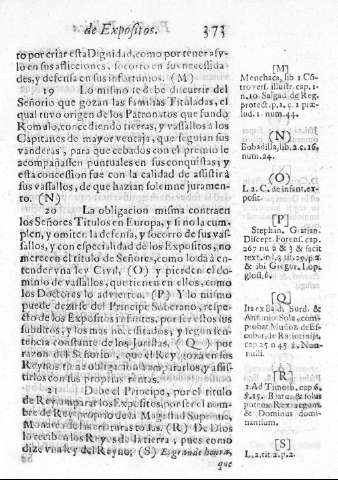 de Expositos. 373
to por criar esta Dignidad, como por tener asy-
lo en sus aflicciones, socorro en sus necessida-
des, y defensa en sus infortunios. (M)
19 Lo mismo se debe discurrir del
Señorio que gozan las familias Tituladas, el
qual tuvo origen de los Patronatos que fundo
Romulo, concediendo tierras, y vassallos à los
Capitanes de mayor ventaja, que seguian sus
vanderas, para que cebados con el premio le
acompañassen puntuales en sus conquistas; y
esta concession fue con la calidad de assistir à
sus vassallos, de que hazian solemne juramen-
to. (N)
20 La obligacion misma contraen
los Señores Titulos en Europa, y si no la cum-
plen, y omiten la defensa, y socorro de sus vas-
sallos, y con especialidad de los Expositos, no
merecen el titulo de Señores, como lo dà à en-
tender vna ley Civil, (O) y pierden el domi-
nio de vassallos, que tienen en ellos, como
los Doctores lo advierten. (P) Y lo mismo
puede dezirse del Principe Soberano, respe-
cto de los Expositos infantes, por ser ellos sus
subditos, y los mas necessitados, y segun sen-
tencia constante de los Juristas, (Q) por
razon del Señorio, que el Rey goza en sus
Reynos tiene obligacion à ampararlos, y assis-
tirlos con sus proprias rentas.
21 Debe el Principe, por el titulo
de Rey, amparar los Expositos, por ser el nom-
bre de Rey proprio de la Magestad Suprema,
Monarca de los Monarcas todos. (R) De Dios
lo reciben los Reyes de la tierra, pues como
dize vna ley del Reyno, (S) E grande honra
que
[M]
Menchaca, lib. 1. Cõ-
trovers. illustr. cap. 1.
n. 10. Salgad. de Reg.
protect. p. 1. c. 1. præ-
lud. 1. num. 44.
(N)
Bobadilla, lib. 2. c. 16.
num. 24.
(O)
L. 2. C. de infant. ex-
posit.
[P]
Stephan. Gratian.
Discept. Forens. cap.
[Q]
cobar, de Ratiocinijs,
cap. 25. n. 45.
[R]
1. Ad Timoth. cap. 6.
de Dominus domi-
nantium.
[S]
L. 2. tit. 2. p. 2.